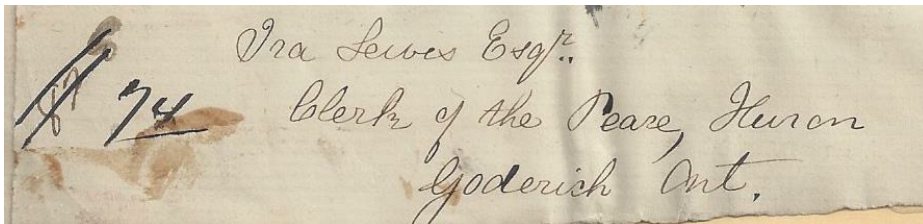 Ira Lewis Esqr.
74 Clerk of the Peace, Huron
Goderich Ont.